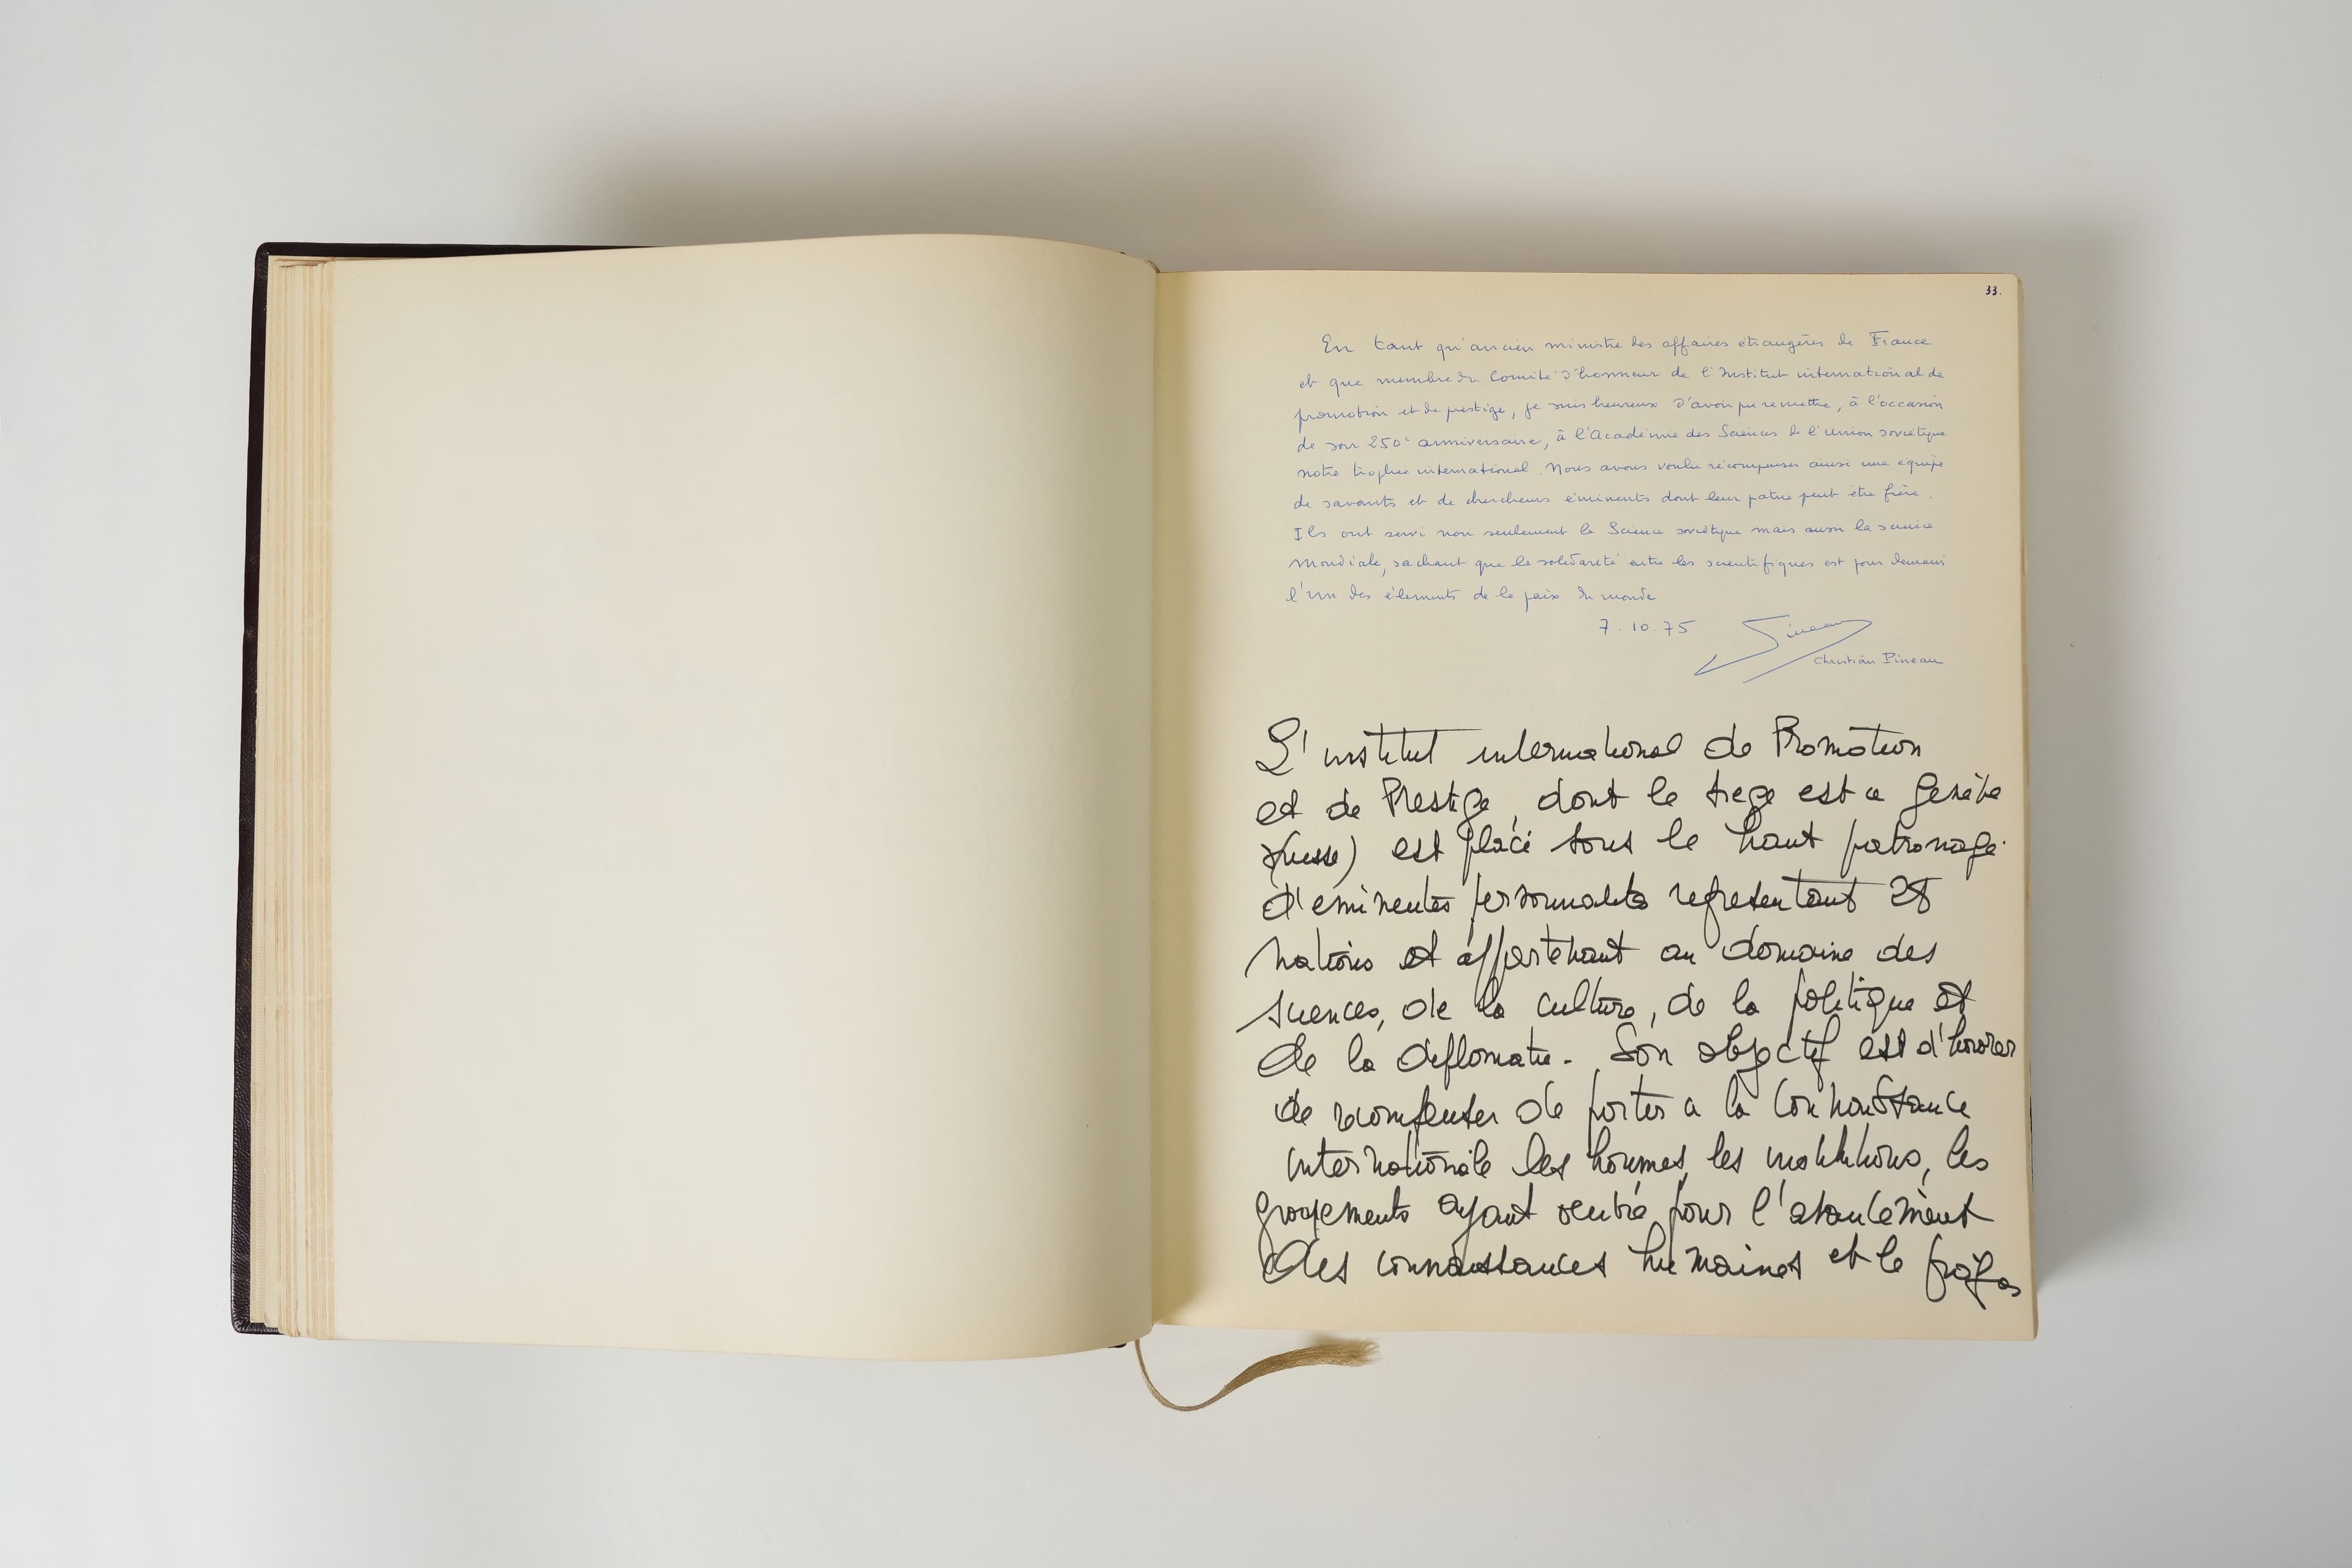 33.
En tant qu'ancien ministre des affaires étrangères de France
et que membre du Comité d'honneur de l'Institut international de
promotion et de prestige, je suis heureux d'avoir pu remettre, à l'occasion
de son 250e anniversaire, à l'Académie des Sciences de l'Union soviétique
notre trophée international. Nous avons voulu récompenser ainsi une équipe
de savants et de chercheurs éminents dont leur patrie peut être fière.
Ils ont servi non seulement la Science soviétique mais aussi la science
mondiale, sachant que la solidarité entre les scientifiques est pour demain
l'un des éléments de la paix du monde
7.10.75 Pineau
Christian Pineau
L'institut international de Promotion
et de Prestige, dont le siege est a Genève
(Suisse) est placé sous le haut patronage
d'eminentes personnalités representant 28
nations et appartenant au domaine des
sciences, de la culture, de la politique et
de la diplomatie - Son objectif est d'honorer
de recompenser de porter a la connaissance
internationale les hommes, les institutions, les
groupements ayant oeuvré pour l'avancement
des connaissances humaines et le progrès